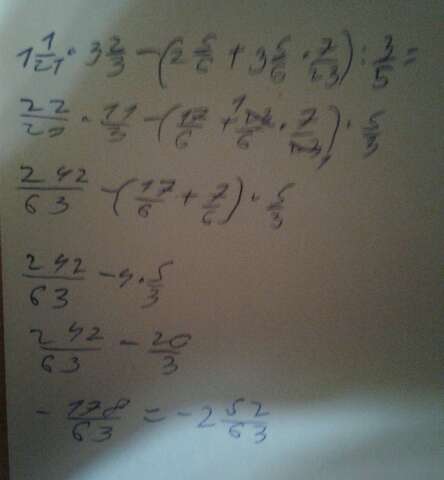 1 1/21 · 3 2/3 - (2 5/6 + 3 5/6 · 7/23) : 3/5 =
22/21 · 11/3 - (17/6 + 23/6 · 7/23) · 5/3
242/63 - (17/6 + 7/6) · 5/3
242/63 - 4 · 5/3
242/63 - 20/3
- 178/63 = - 2 52/63